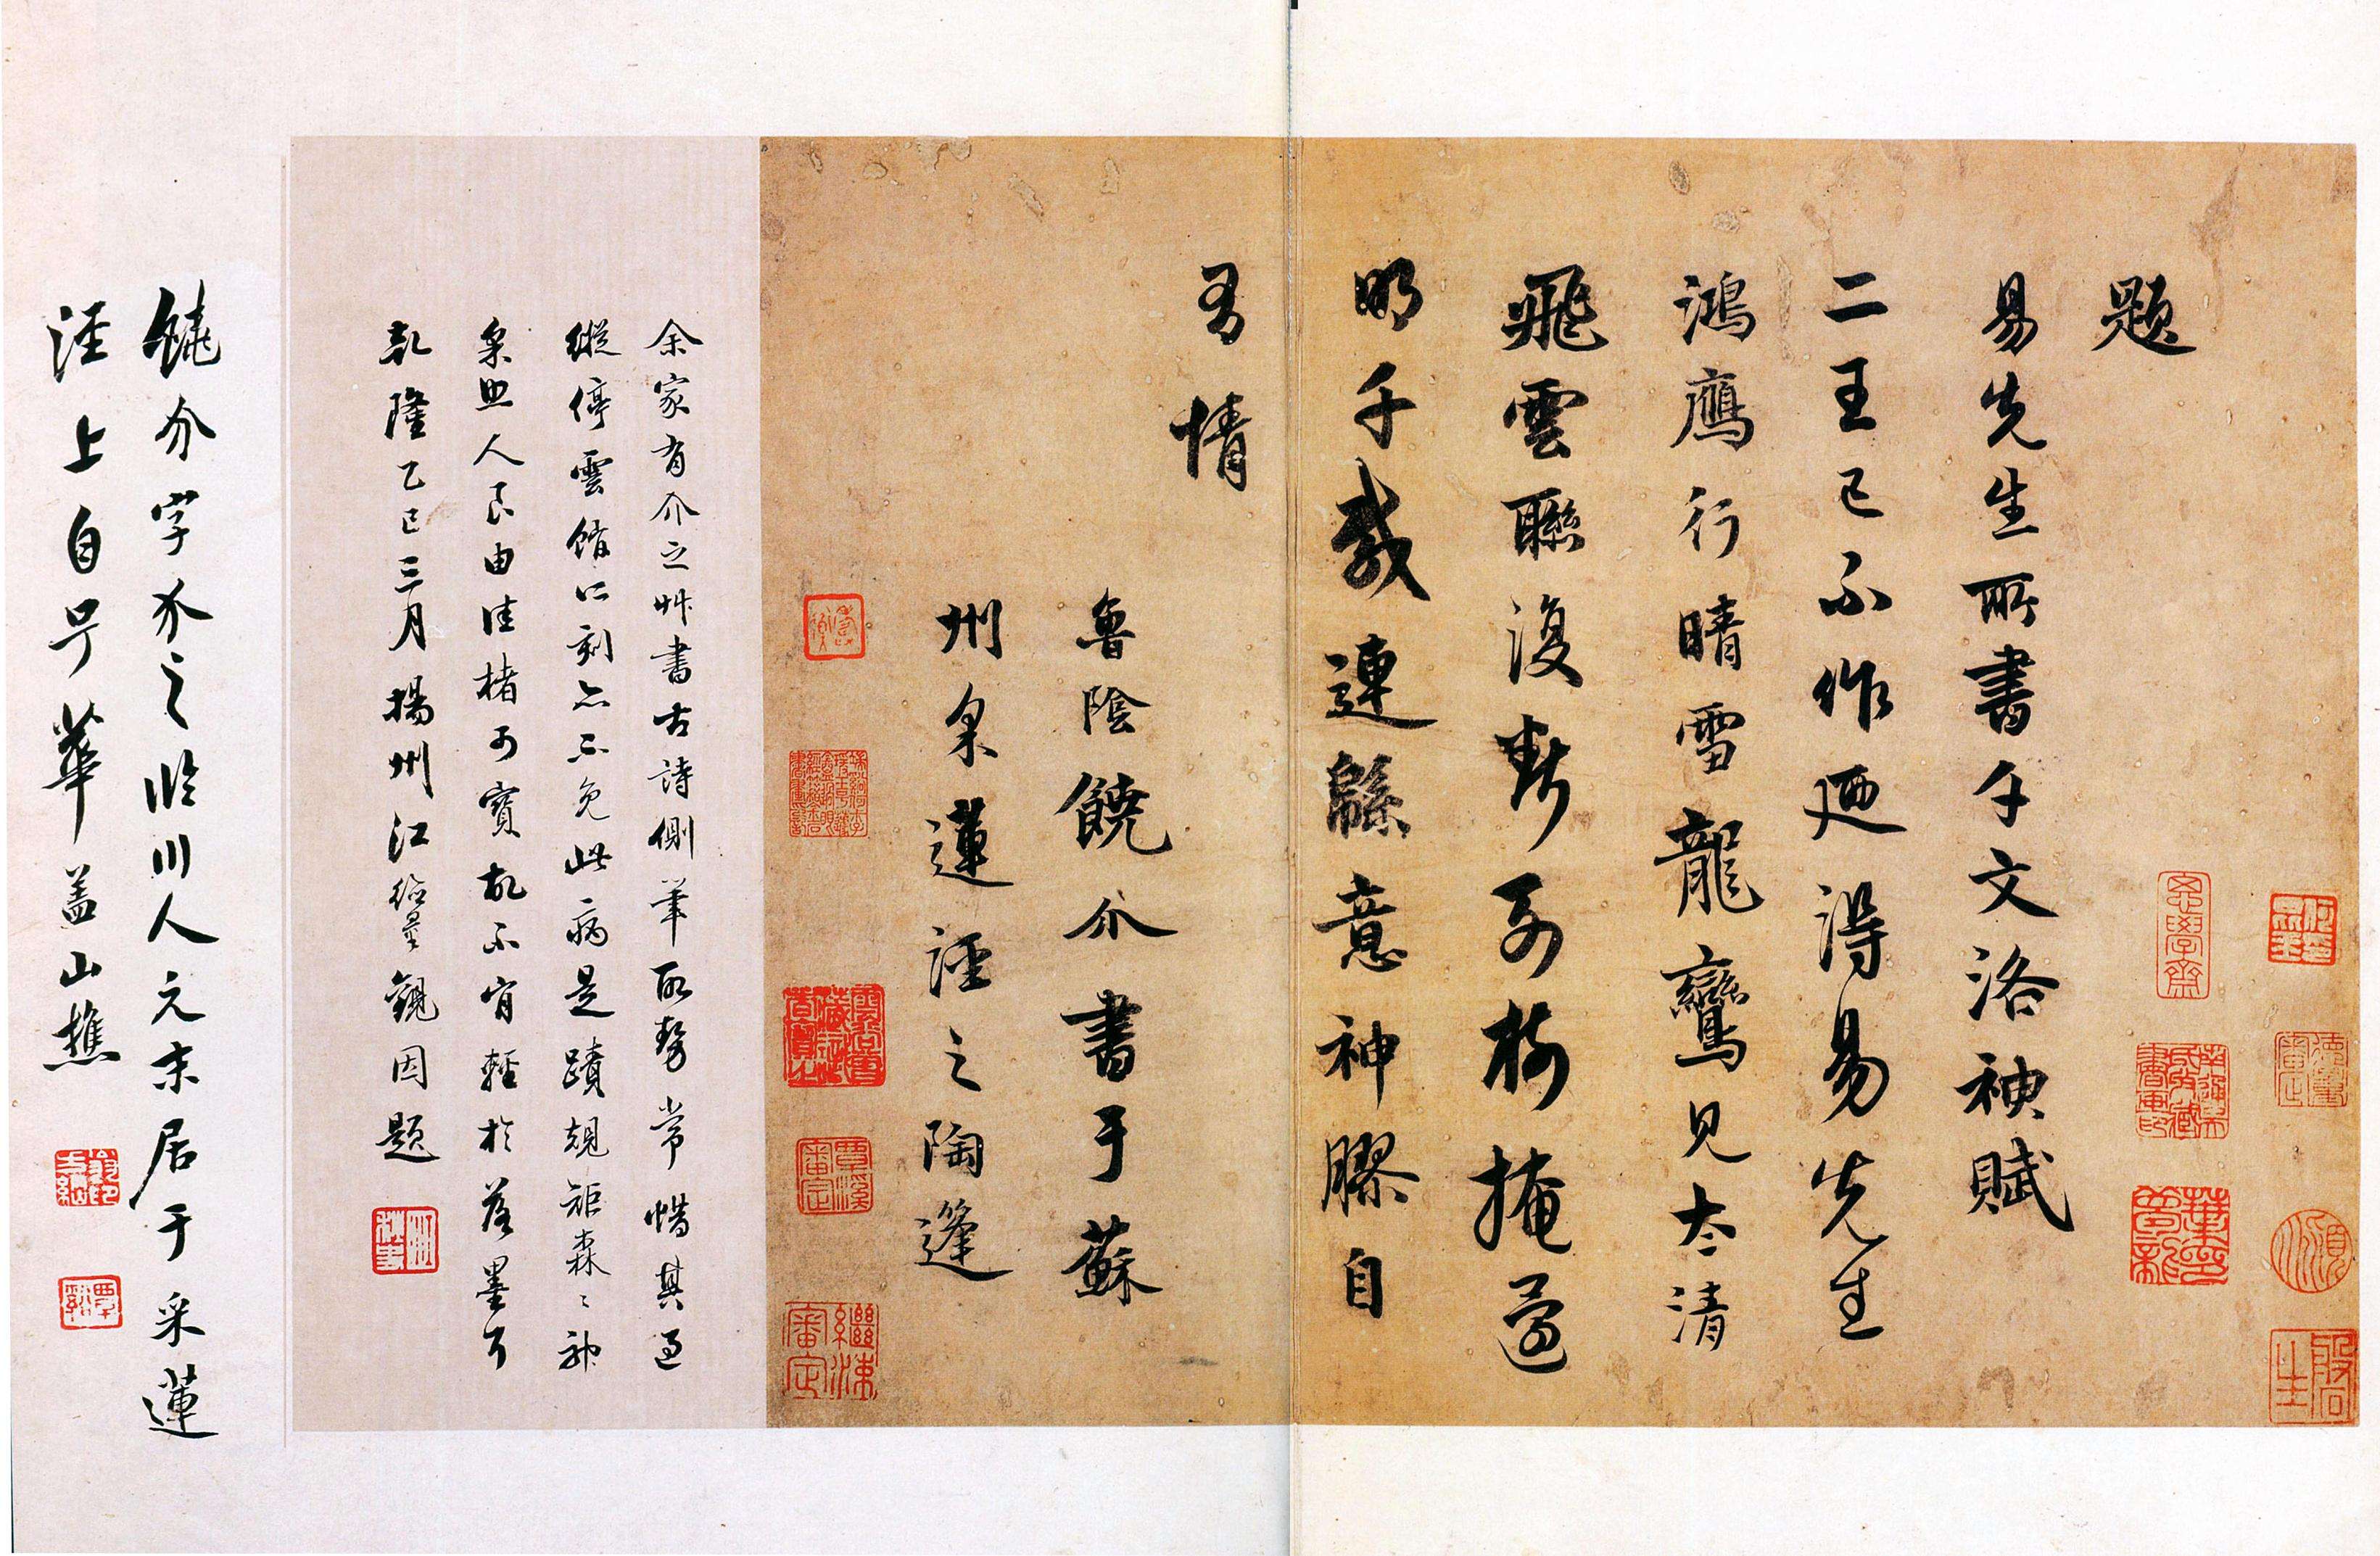 題
易先生所書千文洛神賦
二王已不作廼得易先生
鴻鴈行晴雪龍鸞見太清
飛雲聯復斷列樹掩還
明千載連緜意神膠自
有情
魯陰饒介書于蘇
州泉蓮涇之陶篷
余家有介之艸書古詩側筆取勢常惜其過
縱停雲館所刻亦不免此病是蹟規矩森〻神
采照人良由佳楮可寶故不肯輕於落墨耳
乾隆乙巳三月揚州江德量觀因題
饒介字介之臨川人元末居于采蓮
涇上自号華蓋山樵
思學齋
覃溪審定
繼涷審定